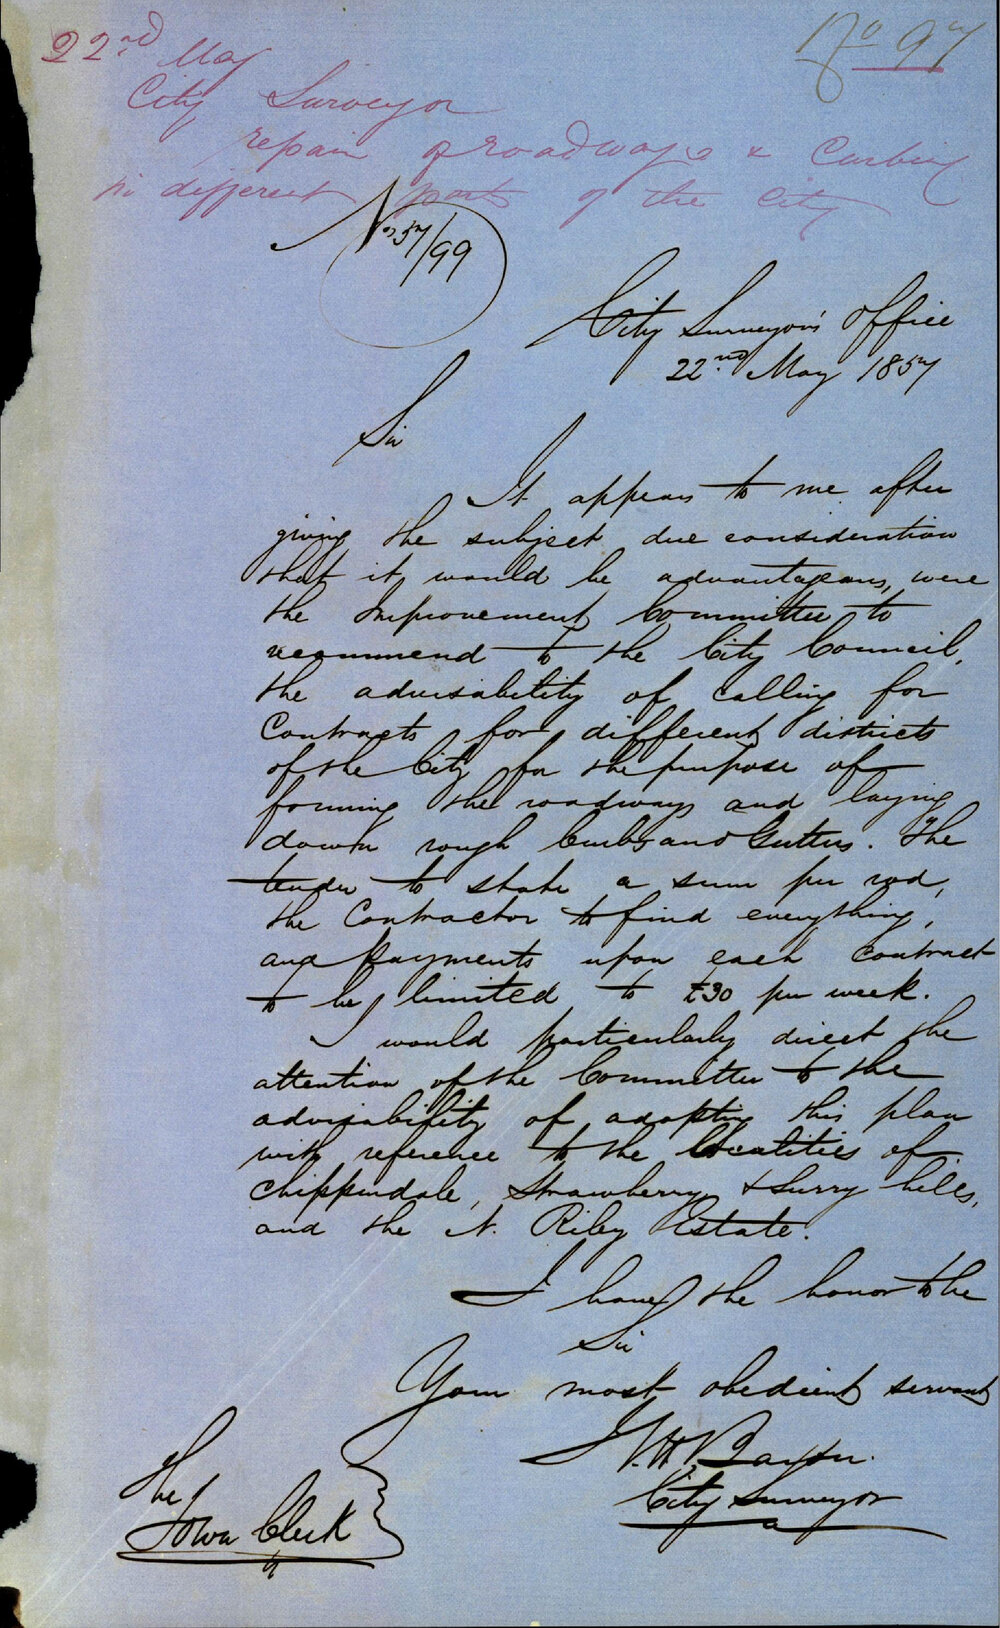 22nd May
No 97
City Surveyor
repair of roadways & Curbing
in different parts of the City
No 57/99
City Surveyor's Office
22nd May 1857
Sir
It appears to me after
giving the subject due consideration
that it would be advantageous, were
the Improvement Committee to
recommend to the City Council,
the advisability of calling for
Contracts for different districts
of the City for the purpose of
forming the roadways and laying
down rough Curbs and Gutters. The
tender to state a sum per rod,
the Contractor to find everything,
and payments upon each contract
to be limited to £30 per week.
I would particularly direct the
attention of the Committee to the
advisability of adopting this plan
with reference to the localities of
Chippendale, Strawberry & Surry hills,
and the N. Riley Estate.
I have the honor to be
Sir
Your most obedient servant
City Surveyor
The
Town Clerk